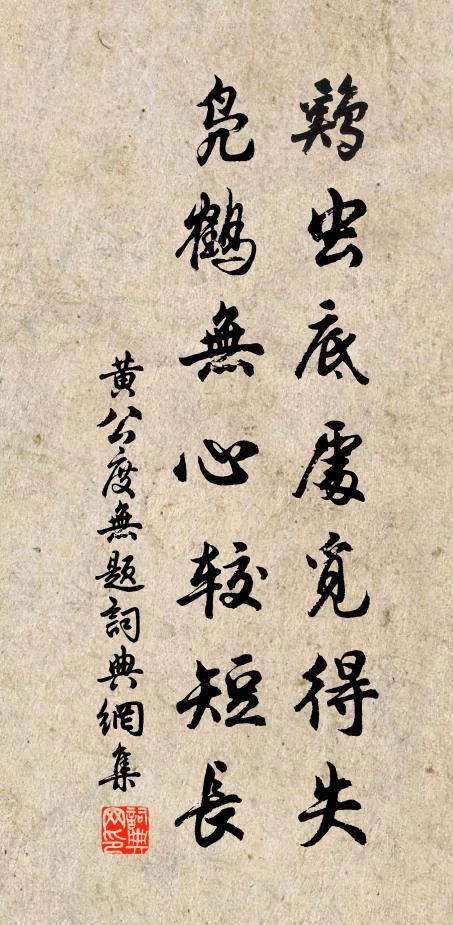 鷄虫底處覓得失
凫鶴無心較短長
黄公度無题詞典網集
詞典網印